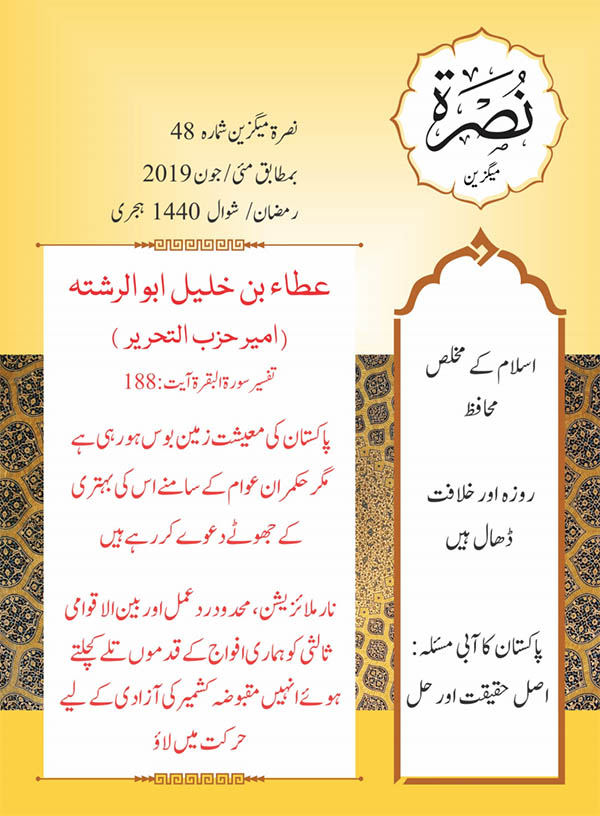 نُصرۃ
میگزین
نصرۃ میگزین شمارہ 48
بمطابق مئی/جون 2019
رمضان/ شوال 1440 ہجری
اسلام کے مخلص
محافظ
روزہ اور خلافت
ڈھال ہیں
پاکستان کا آبی مسئلہ:
اصل حقیقت اور حل
عطاء بن خلیل ابو الرشتہ
(امیر حزب التحریر )
تفسیر سورۃ البقرۃ آیت: 188
پاکستان کی معیشت زمین بوس ہو رہی ہے
مگر حکمران عوام کے سامنے اس کی بہتری
کے جھوٹے دعوے کر رہے ہیں
نارملائزیشن، محدود ردعمل اور بین الاقوامی
ثالثی کو ہماری افواج کے قدموں تلے کچلتے
ہوئے انہیں مقبوضہ کشمیر کی آزادی کے لیے
حرکت میں لاؤ